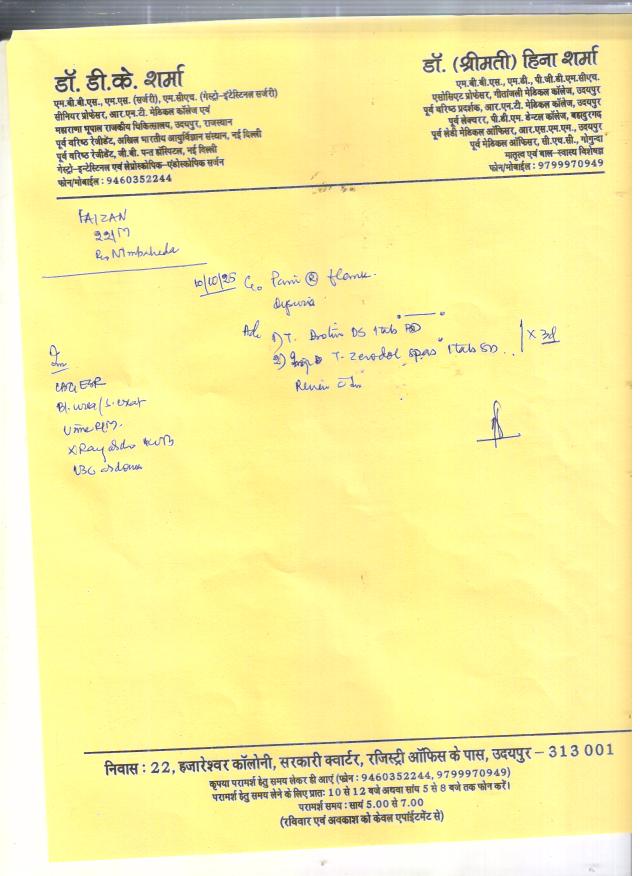 डॉ. डी.के. शर्मा
एम.बी.बी.एस., एम.एस. (सर्जरी), एम.सीएच. (गेस्ट्रो-इंटेस्टिनल सर्जरी)
सीनियर प्रोफेसर, आर.एन.टी. मेडिकल कॉलेज एवं
महाराणा भूपाल राजकीय चिकित्सालय, उदयपुर, राजस्थान
पूर्व वरिष्ठ रेजीडेंट, अखिल भारतीय आयुर्विज्ञान संस्थान, नई दिल्ली
पूर्व वरिष्ठ रेजीडेंट, जी.बी. पन्त हॉस्पिटल, नई दिल्ली
गेस्ट्रो-इन्टेस्टिनल एवं लेप्रोस्कोपिक-एंडोस्कोपिक सर्जन
फोन/मोबाईल : 9460352244
डॉ. (श्रीमती) हिना शर्मा
एम.बी.बी.एस., एम.डी., पी.जी.डी.एम.सीएच.
एसोसिएट प्रोफेसर, गीतांजली मेडिकल कॉलेज, उदयपुर
पूर्व वरिष्ठ प्रदर्शक, आर.एन.टी. मेडिकल कॉलेज, उदयपुर
पूर्व लेक्चरर, पी.डी.एम. डेन्टल कॉलेज, बहादुरगढ़
पूर्व लेडी मेडिकल ऑफिसर, आर.एस.एम.एम., उदयपुर
पूर्व मेडिकल ऑफिसर, सी.एच.सी., गोगुन्दा
मातृत्व एवं बाल-स्वास्थ्य विशेषज्ञ
फोन/मोबाईल : 9799970949
FAIZAN
22/M
10/10/25 C/o Pain (R) flank
Dysuria
Adv 1) T. DS 1 tab BD
2) T- Zerodol spas 1 tab SD x 3d
Review
CBC ESR
Bl. urea / S. creat
Urine R/M
X Ray abdo KUB
USG abdomen
निवास : 22, हजारेश्वर कॉलोनी, सरकारी क्वार्टर, रजिस्ट्री ऑफिस के पास, उदयपुर - 313 001
कृपया परामर्श हेतु समय लेकर ही आएं (फोन : 9460352244, 9799970949)
परामर्श हेतु समय लेने के लिए प्रातः 10 से 12 बजे अथवा सांय 5 से 8 बजे तक फोन करें।
परामर्श समय : सायं 5.00 से 7.00
(रविवार एवं अवकाश को केवल एपॉईंटमेंट से)